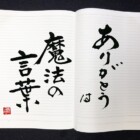 ありがとう
は
魔法の
言葉